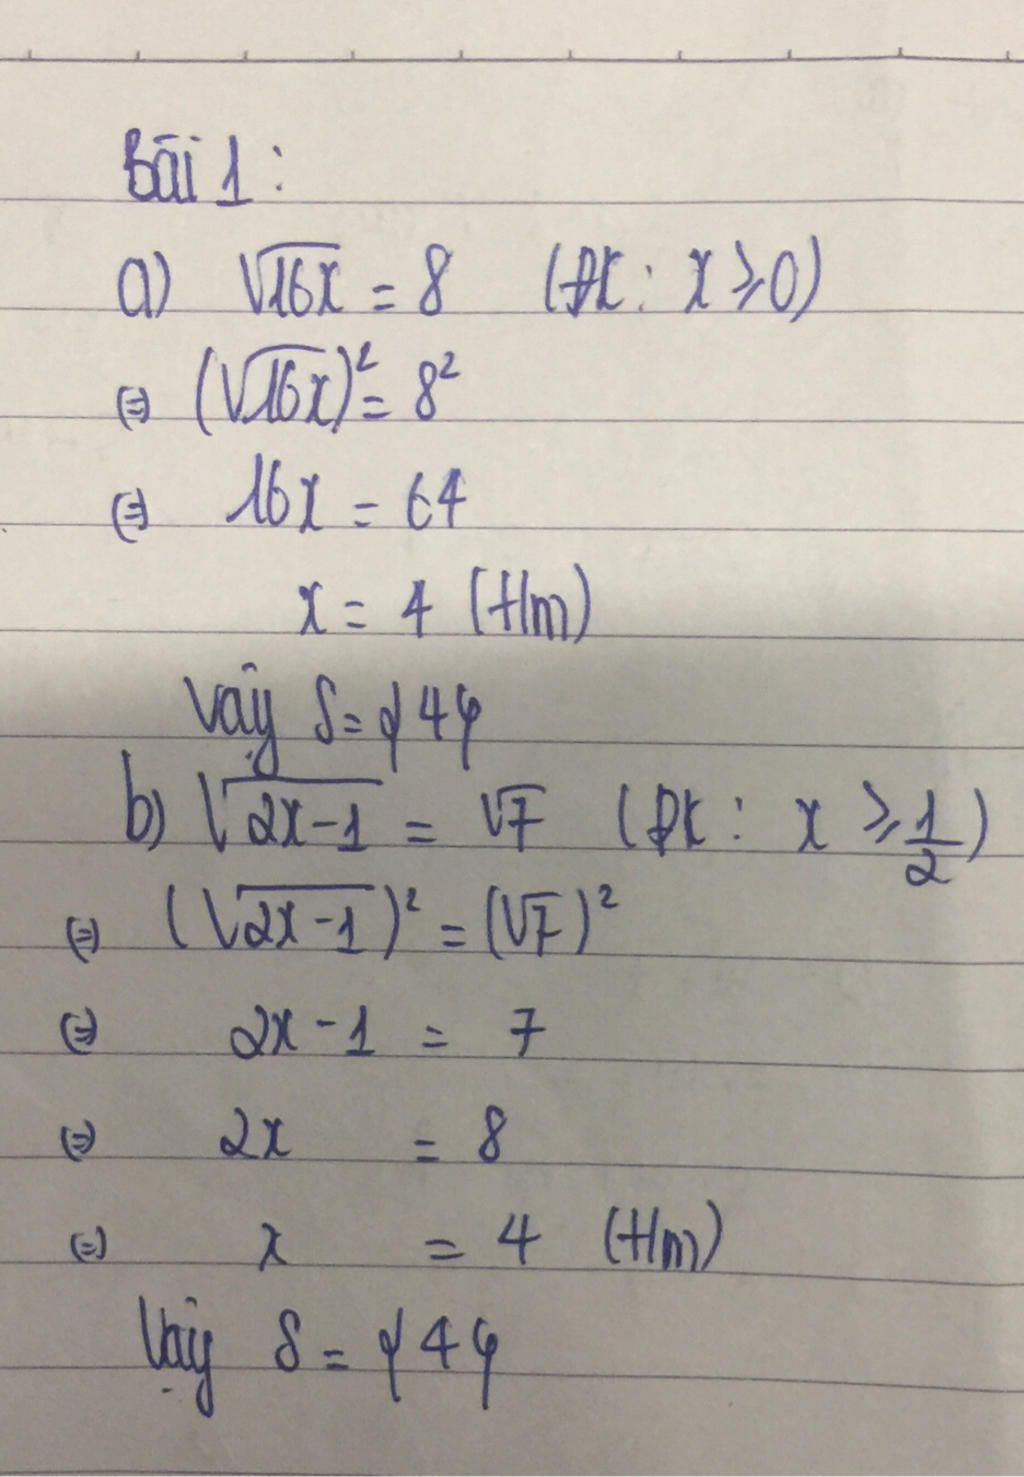 Bài 1:
a) √16x = 8 (ĐK: x ⩾ 0)
⇔ (√16x)² = 8²
⇔ 16x = 64
x = 4 (t/m)
Vậy S = {4}
b) √2x-1 = √7 (ĐK: x ⩾ 1/2)
⇔ (√2x-1)² = (√7)²
⇔ 2x-1 = 7
⇔ 2x = 8
⇔ x = 4 (t/m)
Vậy S = {4}